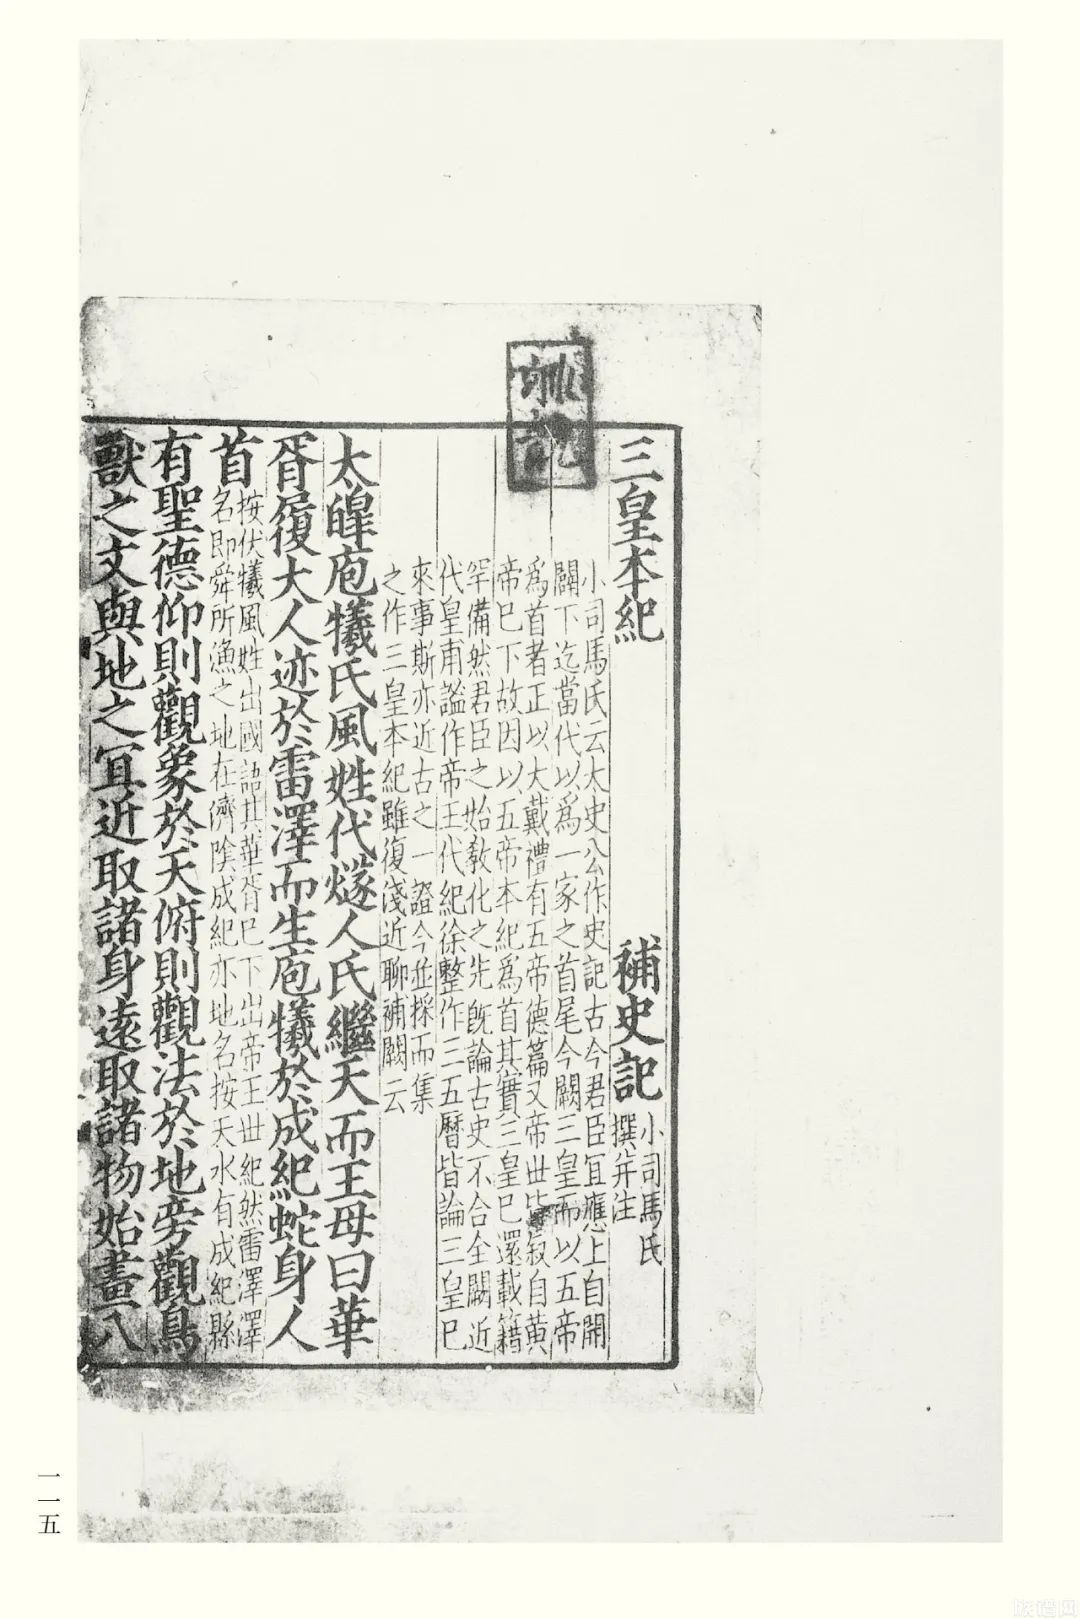 三皇本紀　補史記　小司馬氏
撰并注
小司馬氏云太史公作史記古今君臣冝應上自開
闢下迄當代以爲一家之首尾今闕三皇而以五帝
爲首者正以大戴禮有五帝德篇又帝丗皆叙自黄
帝巳下故因以五帝本紀爲首其實三皇巳還載籍
罕備然君臣之始教化之先旣論古史不合全闕近
代皇甫謐作帝王代紀徐整作三五曆皆論三皇巳
來事斯亦近古之一證今並採而集
之作三皇本紀雖復淺近聊補闕云
太皥庖犧氏風姓代燧人氏繼天而王母曰華
胥履大人迹於雷澤而生庖犧於成紀蛇身人
首 按伏犧風姓出國語其華胥巳下出帝王丗紀然雷澤澤
名即舜所漁之地在濟隂成紀亦地名按天水有成紀縣
有聖德仰則觀象於天俯則觀法於地旁觀鳥
獸之文與地之冝近取諸身遠取諸物始畫八
一一五
族谱网